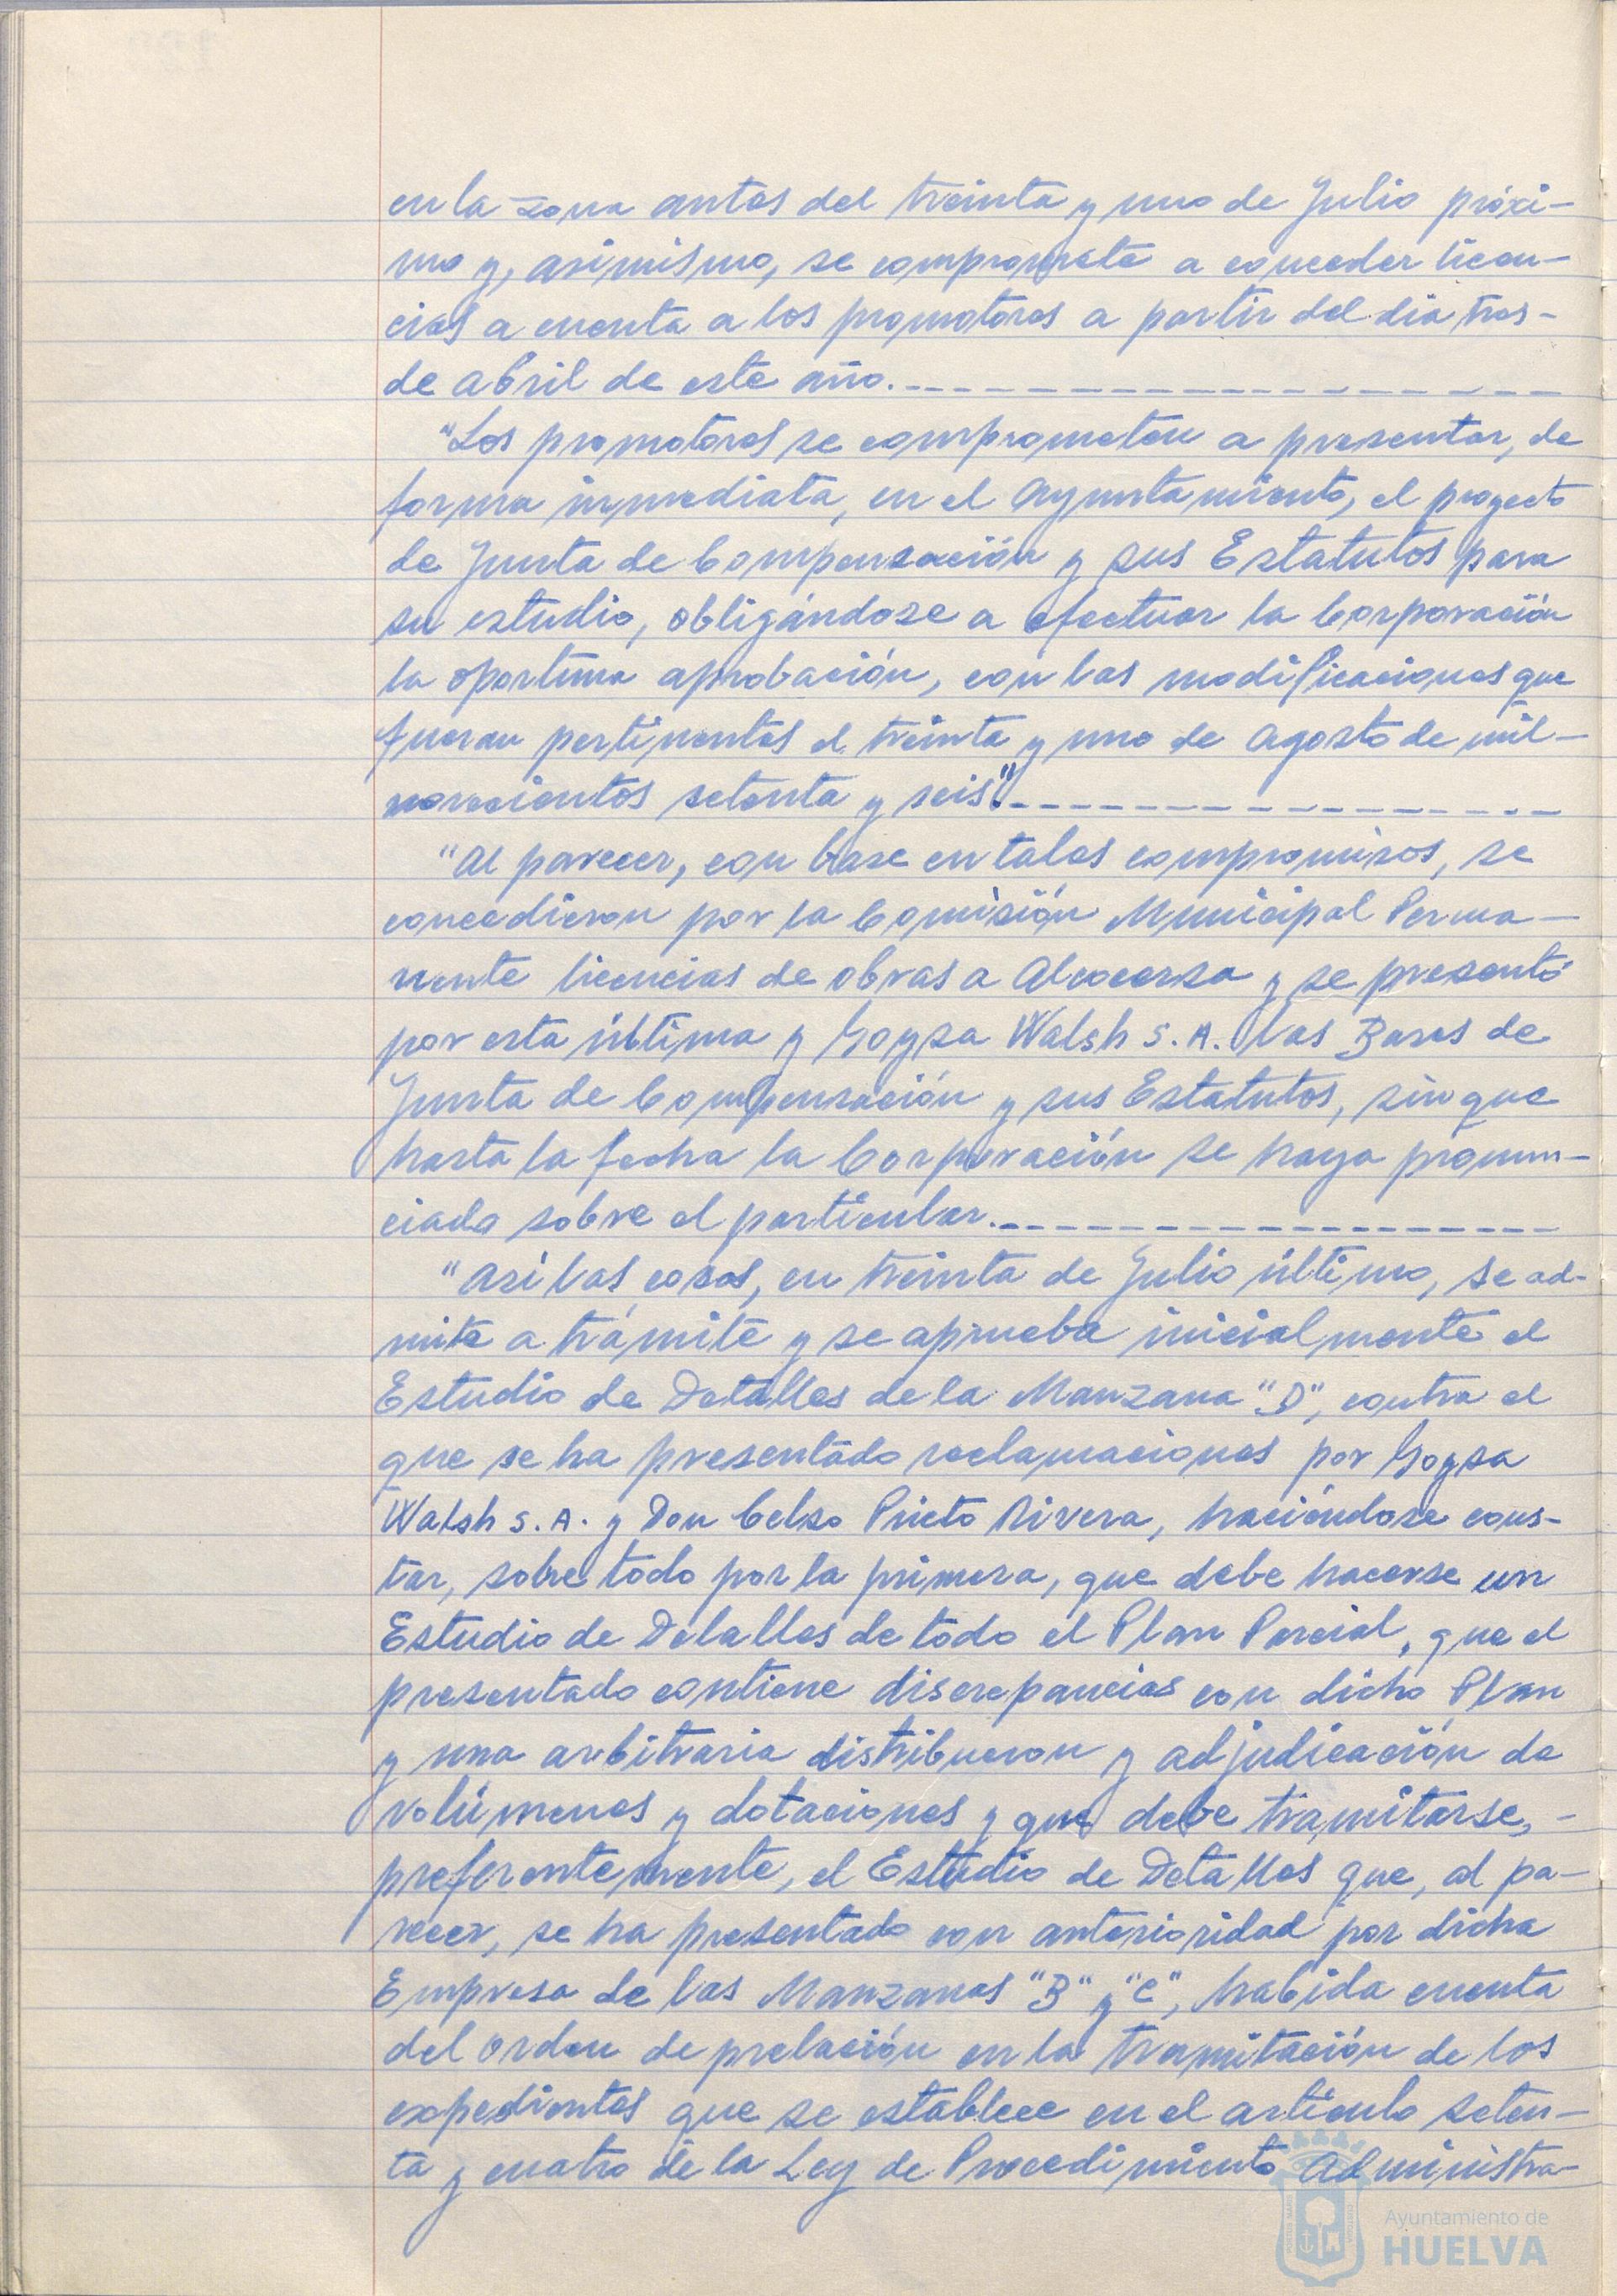 en la zona antes del treinta y uno de Julio próxi-
mo y, asimismo, se compromete a conceder licen-
cias a cuenta a los promotores a partir del dia tres-
de abril de este año.
"Los promotores se comprometen a presentar, de
forma inmediata, en el Ayuntamiento, el proyecto
de Junta de Compensación y sus Estatutos para
su estudio, obligándose a efectuar la Corporación
la oportuna aprobación, con las modificaciones que
fueran pertinentes el treinta y uno de Agosto de mil-
novecientos setenta y seis".
"Al parecer, con base en tales compromisos, se
concedieron por la Comisión Municipal Perma-
nente licencias de obras a Alcocersa y se presentó
por esta última y Goysa Walsh S.A. las Bases de
Junta de Compensación y sus Estatutos, sin que
hasta la fecha la Corporación se haya pronun-
ciado sobre el particular.
"Asi las cosas, en treinta de Julio último, se ad-
mite a trámite y se aprueba inicialmente el
Estudio de Detalles de la Manzana "D", contra el
que se ha presentado reclamaciones por Goysa
Walsh S.A. y Don Celso Prieto Rivera, haciéndose cons-
tar, sobre todo por la primera, que debe hacerse un
Estudio de Detalles de todo el Plan Parcial, que el
presentado contiene discrepancias con dicho Plan
y una arbitraria distribucion y adjudicación de
volúmenes y dotaciones y que debe tramitarse, -
preferentemente, el Estudio de Detalles que, al pa-
recer, se ha presentado con anterioridad por dicha
Empresa de las Manzanas "B" y "C", habida cuenta
del orden de prelación en la tramitación de los
expedientes que se establece en el artículo seten-
ta y cuatro de la Ley de Procedimiento Administra-
Ayuntamiento de
HUELVA